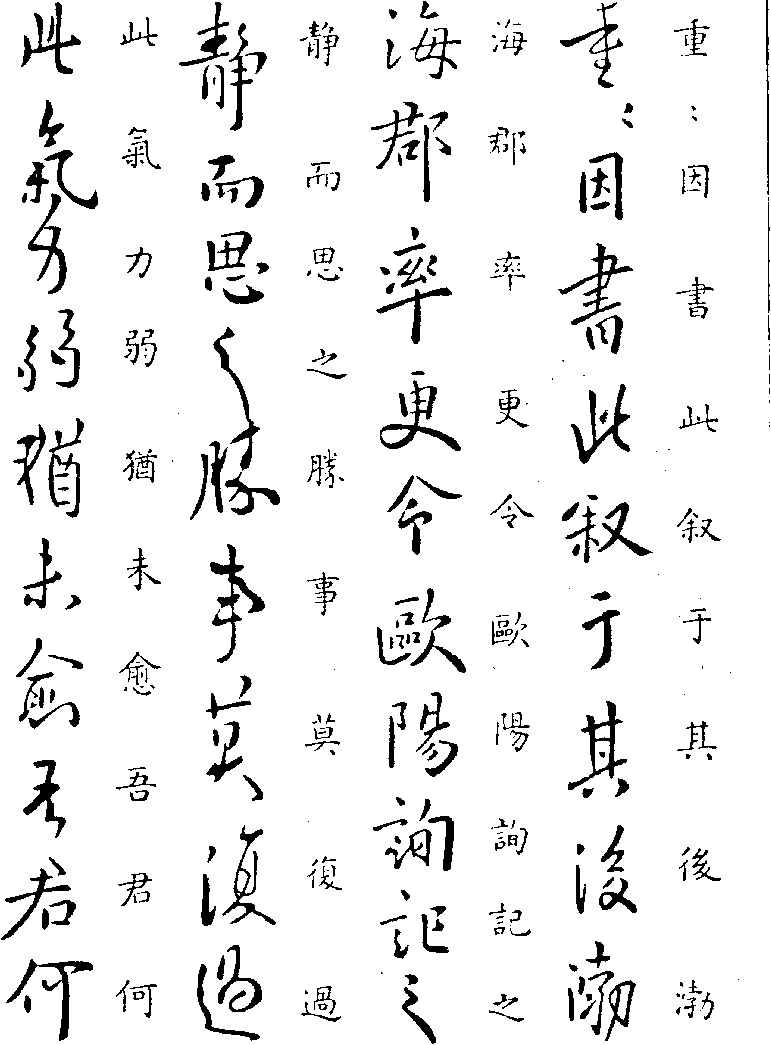 重︰因書此叙于其後渤
重︰因書此叙于其後渤
海郡率更令歐陽詢記之
海郡率更令歐陽詢記之
静而思之勝事莫復過
靜而思之勝事莫復過
此氣力弱猶未愈吾君何
此氣力弱猶未愈吾君何